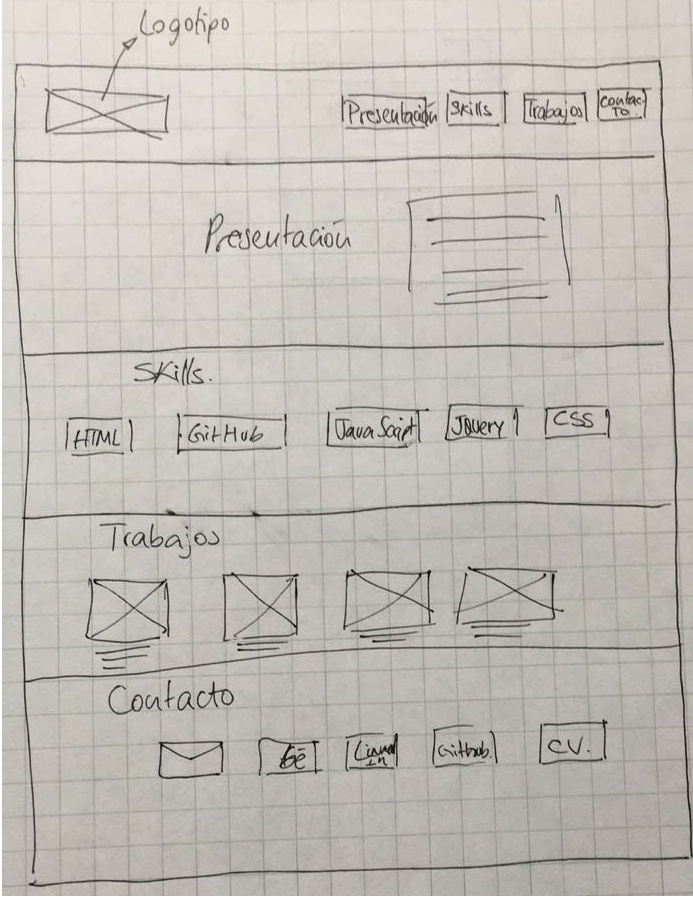 Logotipo
Presentación Skills Trabajos Contac-
TO.
Presentación
Skills.
HTML GitHub JavaScript Jquery CSS
Trabajos
Contacto
Bē Github. C.V.